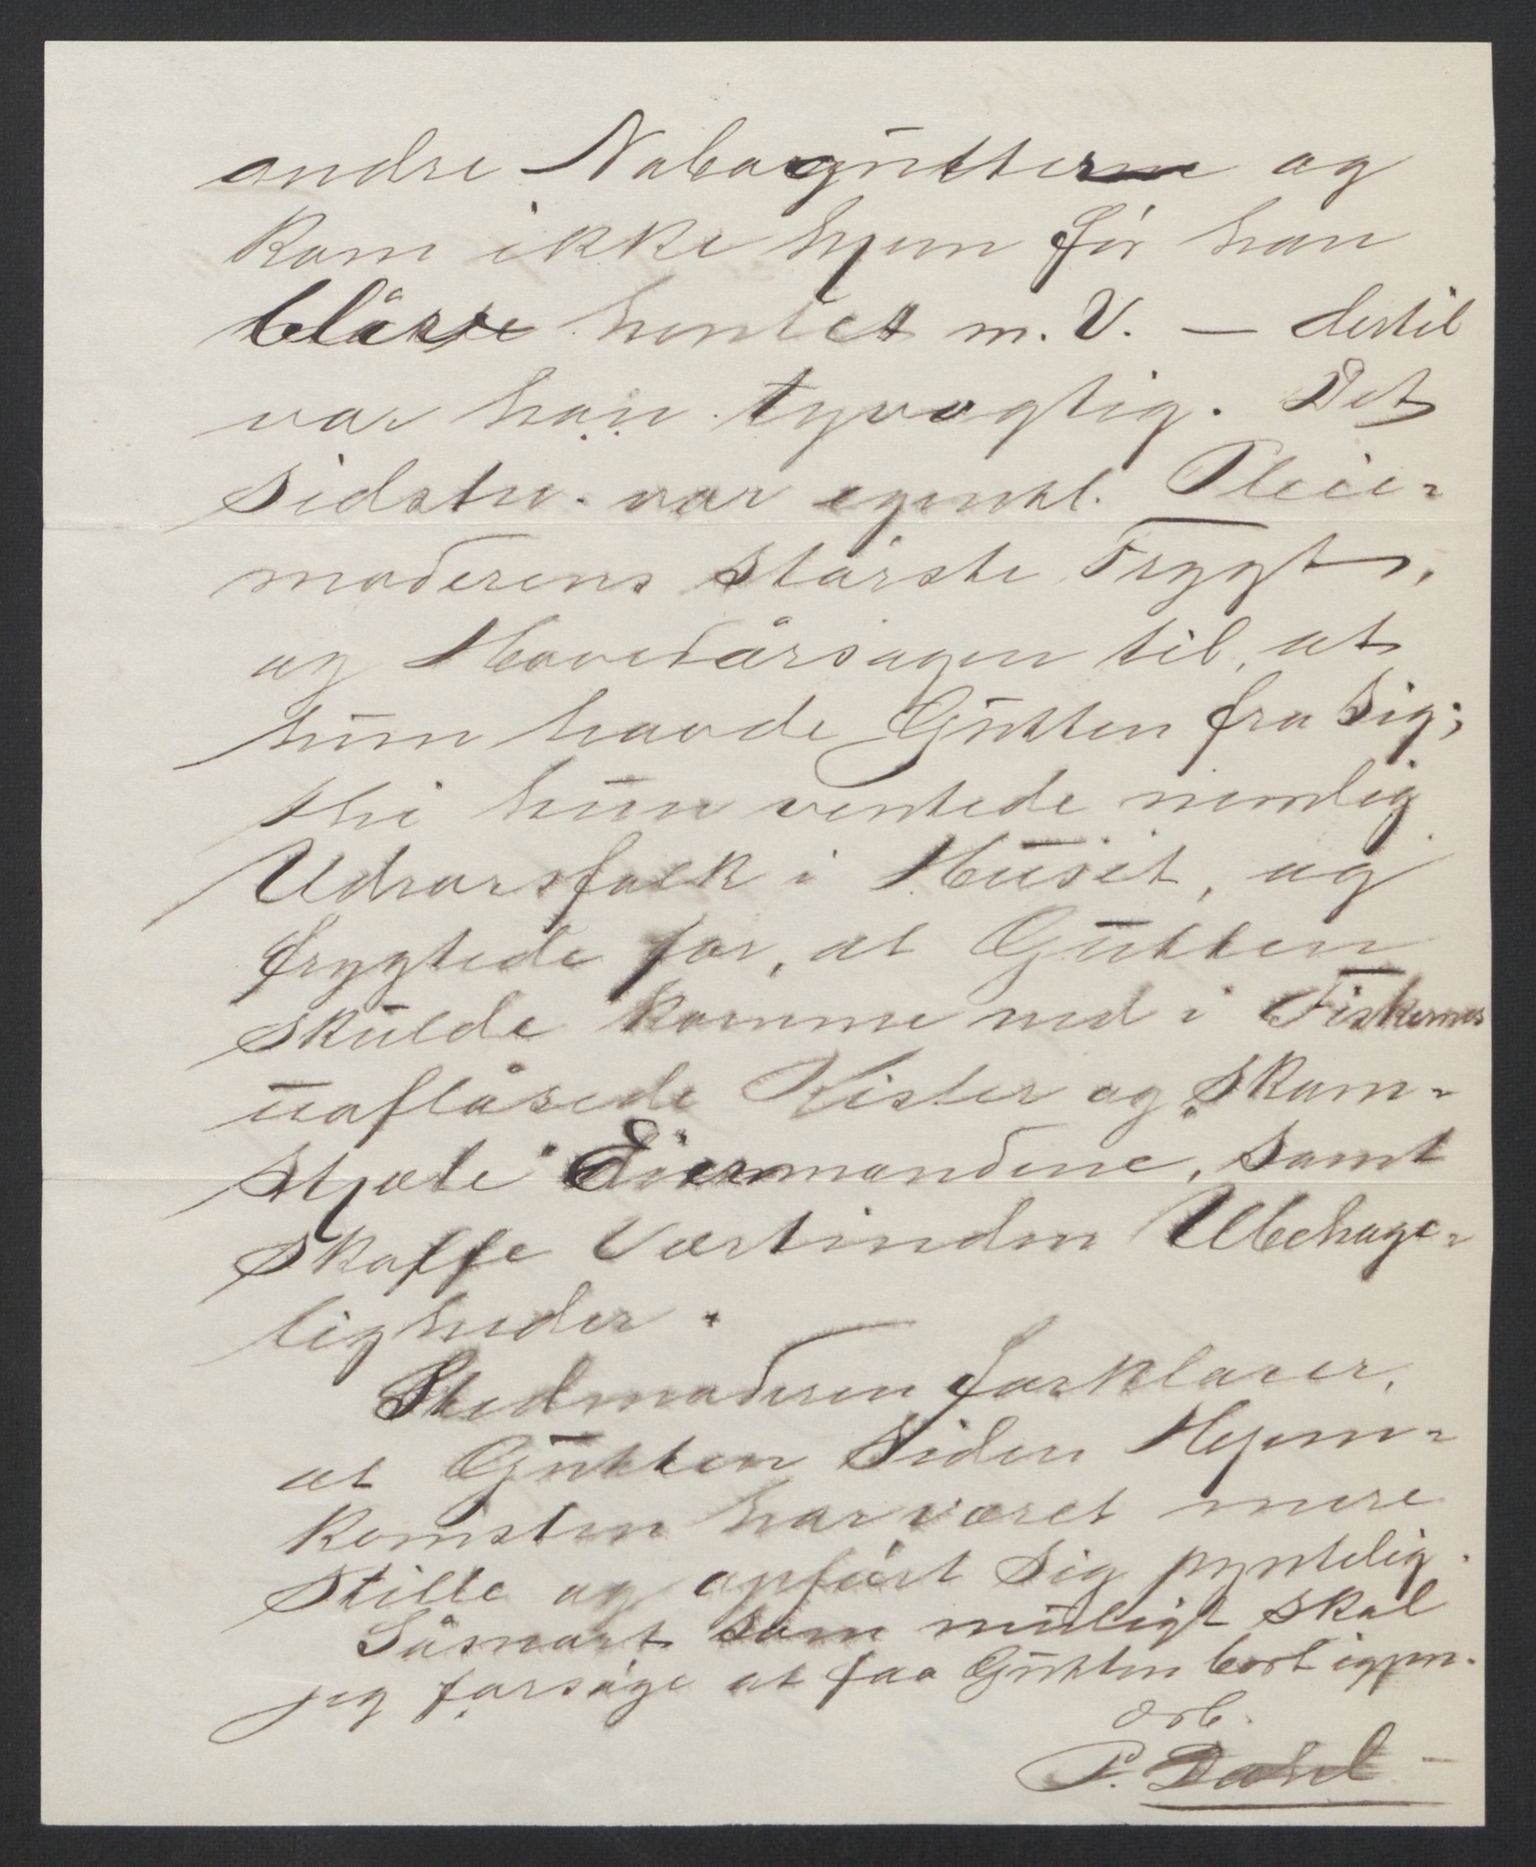 andre Nabogutterne og
kom ikke hjem før han
blåve hentet m. V. — dertil
var han tyvagtig. Det
sidste var egentl. Pleie-
moderens største Frygt,
og Hovedårsagen til, at
hun havde Gutten fra sig;
thi hun ventede nemlig
Udrorsfolk i Huset, og
frygtede for, at Gutten
skulde komme ned i Fiskernes
uaflåsede Kister og
stjæle Eiermændene, samt
skaffe Værtinden Ubehage-
ligheder.
Stedmoderen forklarer,
at Gutten siden Hjem-
komsten har været mere
stille og opført sig pyntelig.
Såsnart som muligt skal
jeg forsøge at faa Gutten bort igjen.
ærb.
P. Dahl —